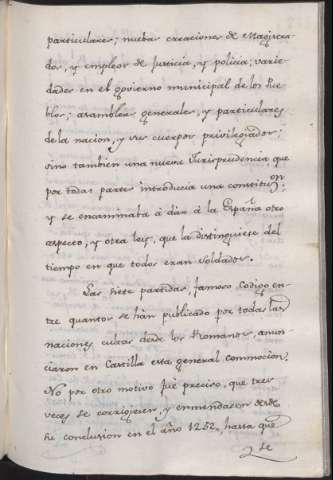 particulares; nuebas creaciones de Magistra-
dos, y empleos de Justicia, y policia; varie-
dades en el govierno municipal de los Pue-
blos; asambleas generales, y particulares
de la nacion, y sus cuerpos privilegiados;
vino tambien una nueva Jurisprudencia que
por todas partes introducia una constituon.
y se encaminaba à dàr à la España otro
aspecto, y otra ley, que la distinguiese del
tiempo en que todos eran soldados.
Las siete partidas, famoso codigo en-
tre quantos se hàn publicado por todas las
naciones cultas desde los Romanos, anun-
ciaron en Castilla esta general commocion.
No por otro motivo fué preciso, que tres
veces se corrigiesen, y enmendasen desde
su conclusion en el año 1252, hasta que
se